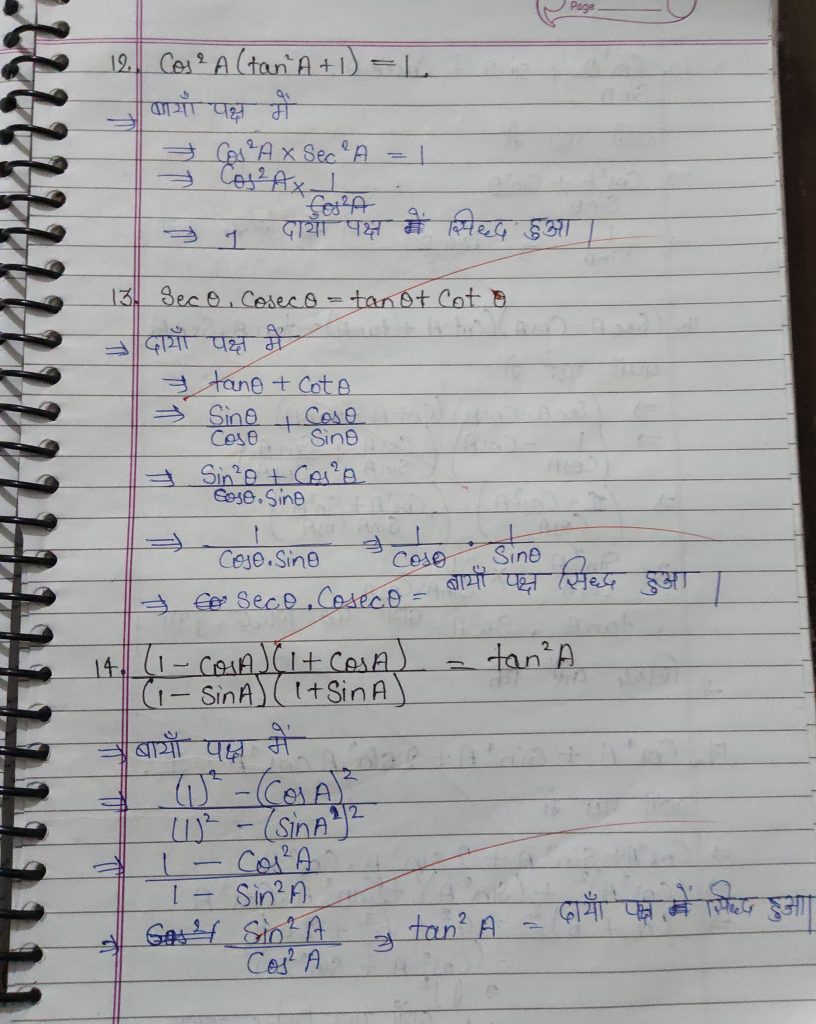 Page
12. Cos²A(tan²A+1) = 1.
⇒ बायाँ पक्ष में
⇒ Cos²A × Sec²A = 1
⇒ Cos²A × 1/Cos²A
⇒ 1 दायाँ पक्ष में सिद्ध हुआ |
13. Secθ.Cosecθ = tanθ + Cot θ
⇒ दायाँ पक्ष में
⇒ tanθ + Cotθ
⇒ Sinθ/Cosθ + Cosθ/Sinθ
⇒ Sin²θ + Cos²θ/Cosθ.Sinθ
⇒ 1/Cosθ.Sinθ ⇒ 1/Cosθ . 1/Sinθ
⇒ Secθ.Cosecθ = बायाँ पक्ष सिद्ध हुआ |
14. (1-CosA)(1+CosA)/(1-SinA)(1+SinA) = tan²A
⇒ बायाँ पक्ष में
⇒ (1)² - (CosA)²/(1)² - (SinA²)²
⇒ 1 - Cos²A/1 - Sin²A
⇒ Sin²A/Cos²A ⇒ tan²A = दायाँ पक्ष में सिद्ध हुआ|